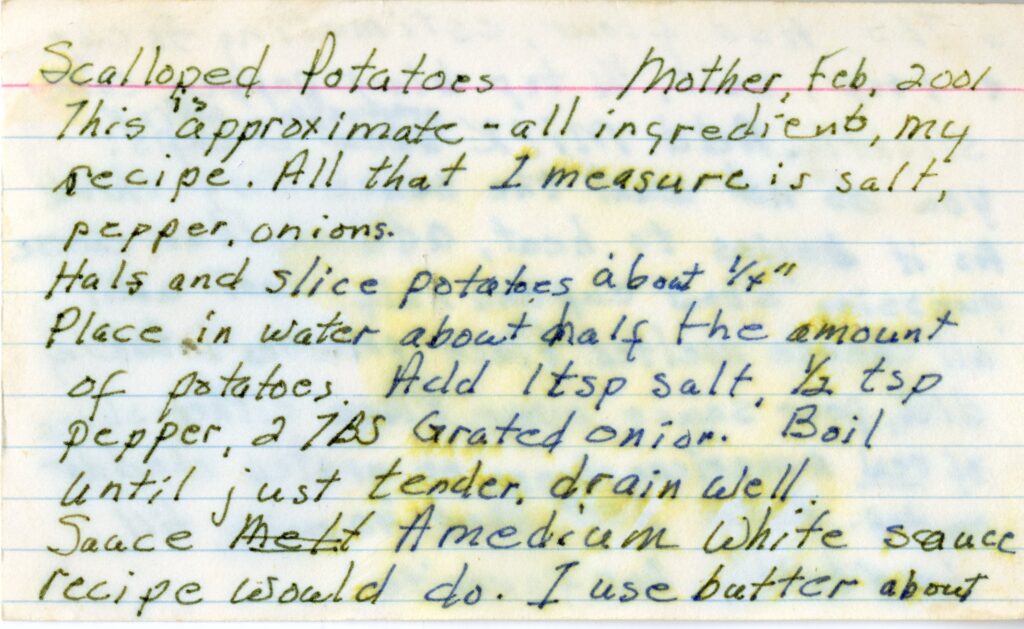 Scalloped Potatoes Mother, Feb, 2001
This is approximate - all ingredients, my
recipe. All that I measure is salt,
pepper, onions.
Hals and slice potatoes about 1/4"
Place in water about half the amount
of potatoes. Add 1 tsp salt, 1/2 tsp
pepper, 2 TBS Grated onion. Boil
until just tender, drain well.
Sauce Melt A medium White sauce
recipe would do. I use butter about